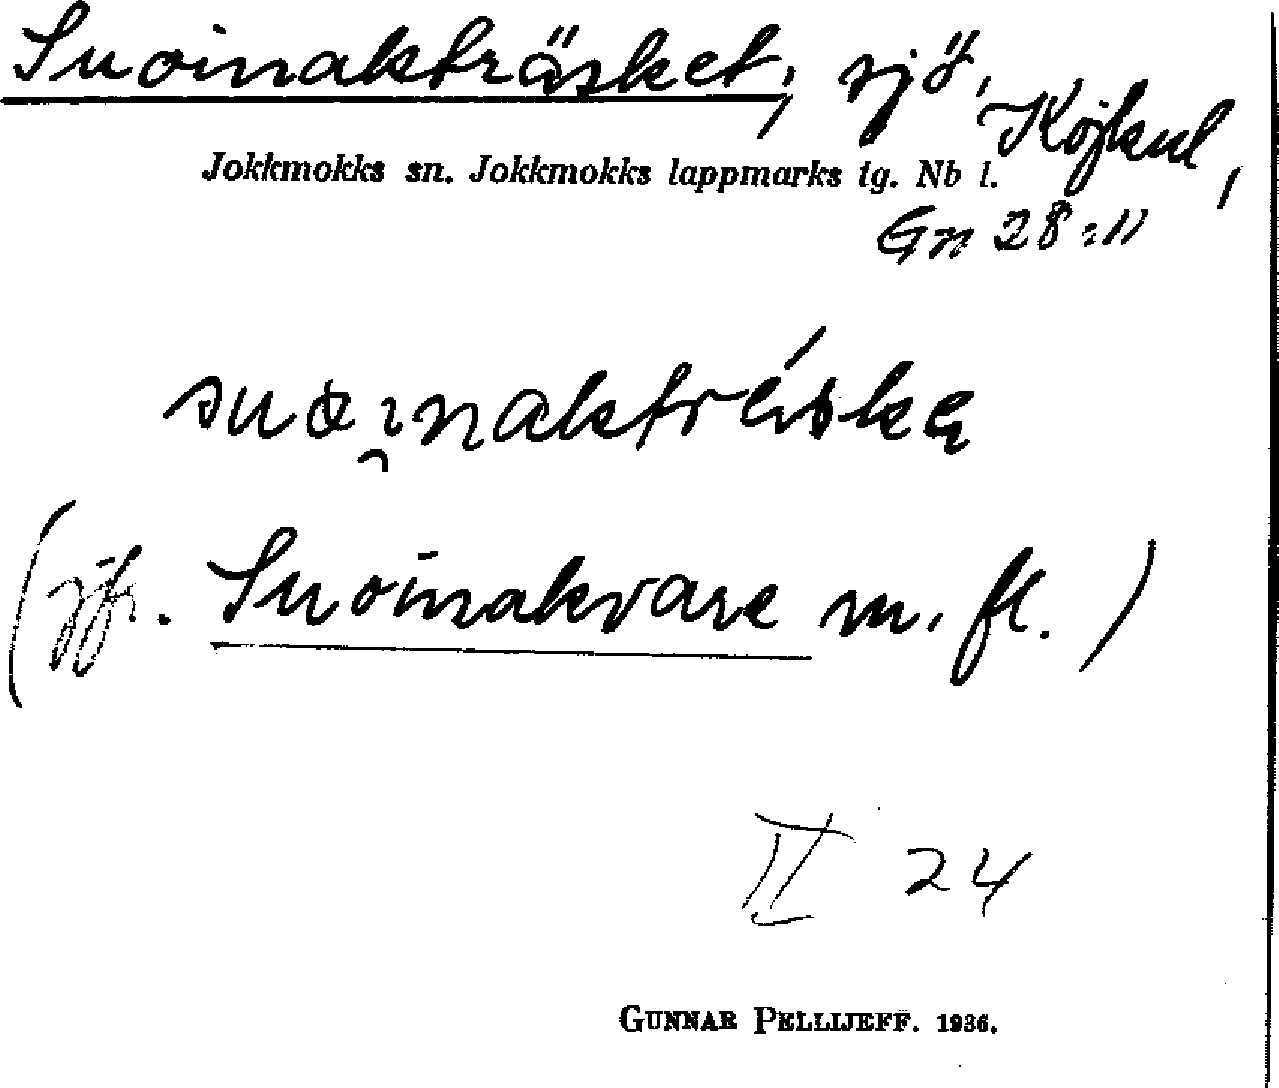 Suoinakträsket, sjö, Kojkul,
Jokkmokks sn. Jokkmokks lappmarks tg. Nb l.
Gn 28:11
(jfr. Suoinakvare m. fl.)
II 24
GUNNAR PELLIJEFF. 1936.